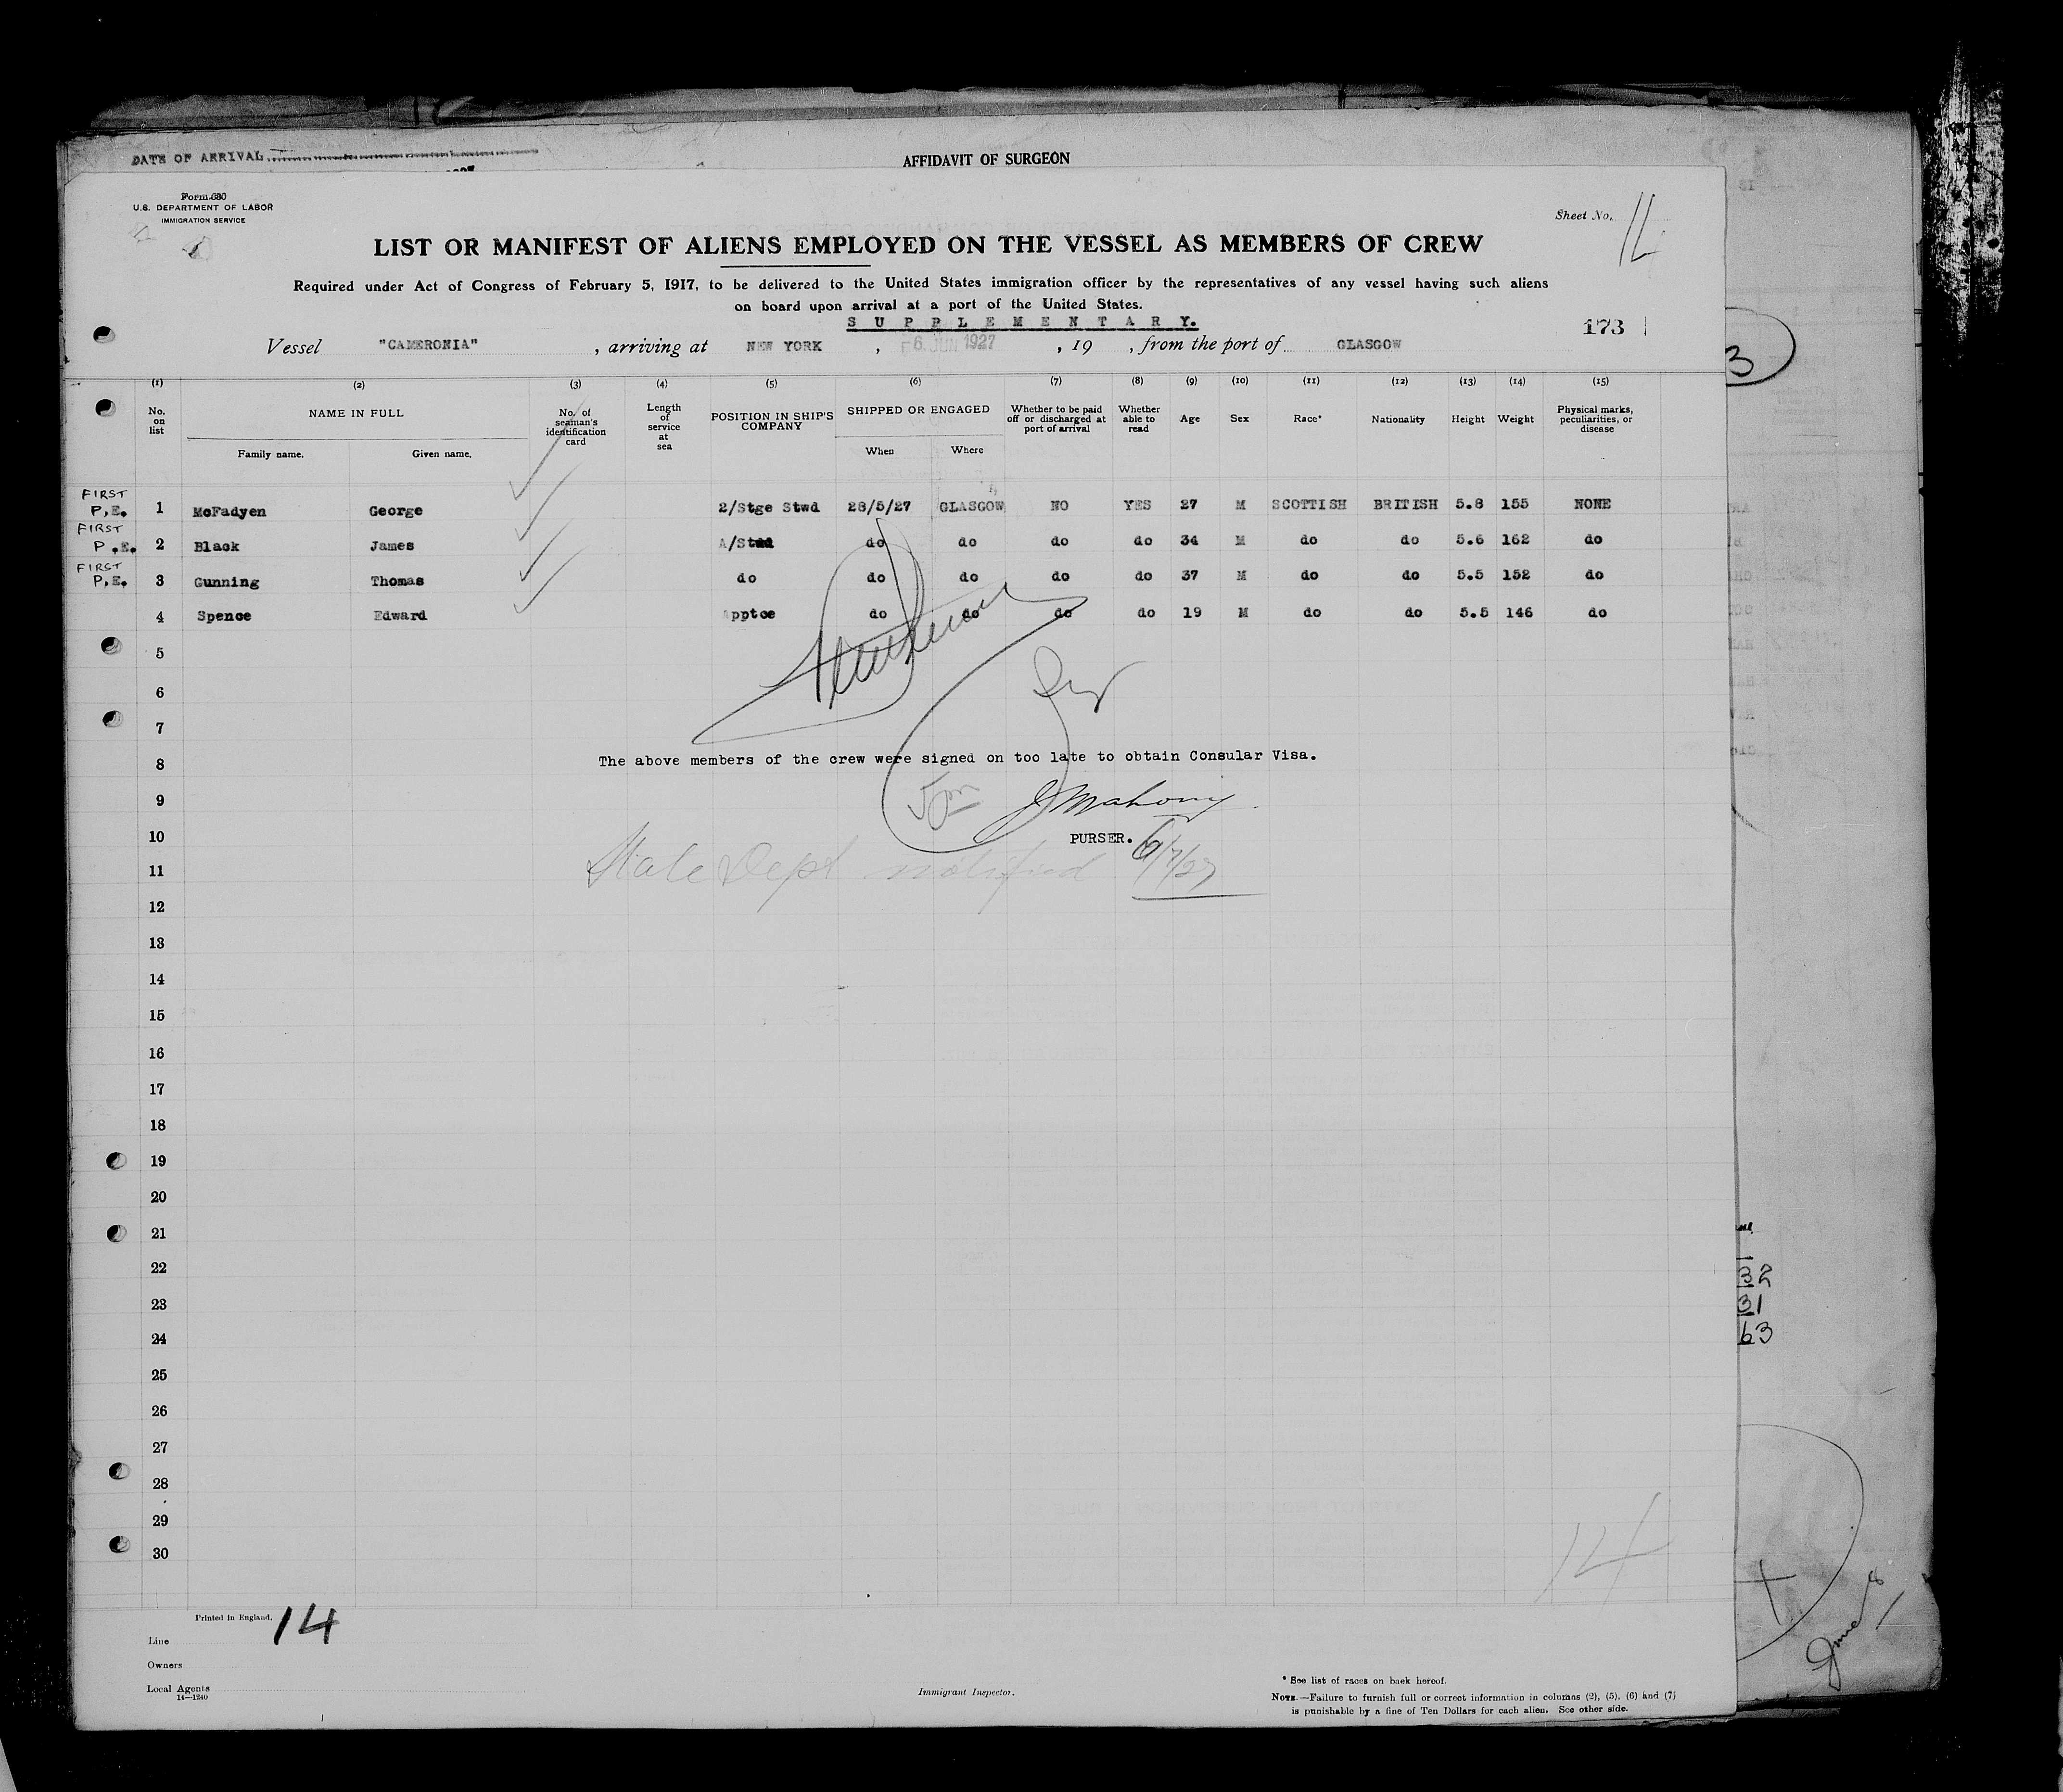 DATE OF ARRIVAL
AFFIDAVIT OF SURGEON
Form 680
U.S. DEPARTMENT OF LABOR
IMMIGRATION SERVICE
Sheet No.
LIST OR MANIFEST OF ALIENS EMPLOYED ON THE VESSEL AS MEMBERS OF CREW
Required under Act of Congress of February 5, 1917, to be delivered to the United States immigration officer by the representatives of any vessel having such aliens
on board upon arrival at a port of the United States.
SUPPLEMENTARY.
173
3
Vessel "CAMERONIA" , arriving at NEW YORK , 6 JUN 1927 , 19 , from the port of GLASGOW
(1) (2) (3) (4) (5) (6) (7) (8) (9) (10) (11) (12) (13) (14) (15)
No. on list
NAME IN FULL
Family name. Given name.
No. of seaman's identification card
Length of service at sea
POSITION IN SHIP'S COMPANY
SHIPPED OR ENGAGED
When Where
Whether to be paid off or discharged at port of arrival
Whether able to read
Age
Sex
Race*
Nationality
Height
Weight
Physical marks, peculiarities, or disease
FIRST P.E. 1 McFadyen George 2/Stge Stwd 28/5/27 GLASGOW NO YES 27 M SCOTTISH BRITISH 5.8 155 NONE
FIRST P.E. 2 Black James A/Stwd do do do do 34 M do do 5.6 162 do
FIRST P.E. 3 Gunning Thomas do do do do do 37 M do do 5.5 152 do
4 Spence Edward Apptce do do do do 19 M do do 5.5 146 do
5
6
7
8 The above members of the crew were signed on too late to obtain Consular Visa.
9 J Mahony
10 PURSER.
11 State Dept notified 6/7/27
12
13
14
15
16
17
18
19
20
21
22
23
24
25
26
27
28
29
30
32
31
63
14
Printed in England. 14
Line
Owners
Local Agents
14—1240
Immigrant Inspector.
* See list of races on back hereof.
NOTE.—Failure to furnish full or correct information in columns (2), (5), (6) and (7)
is punishable by a fine of Ten Dollars for each alien. See other side.
June 8